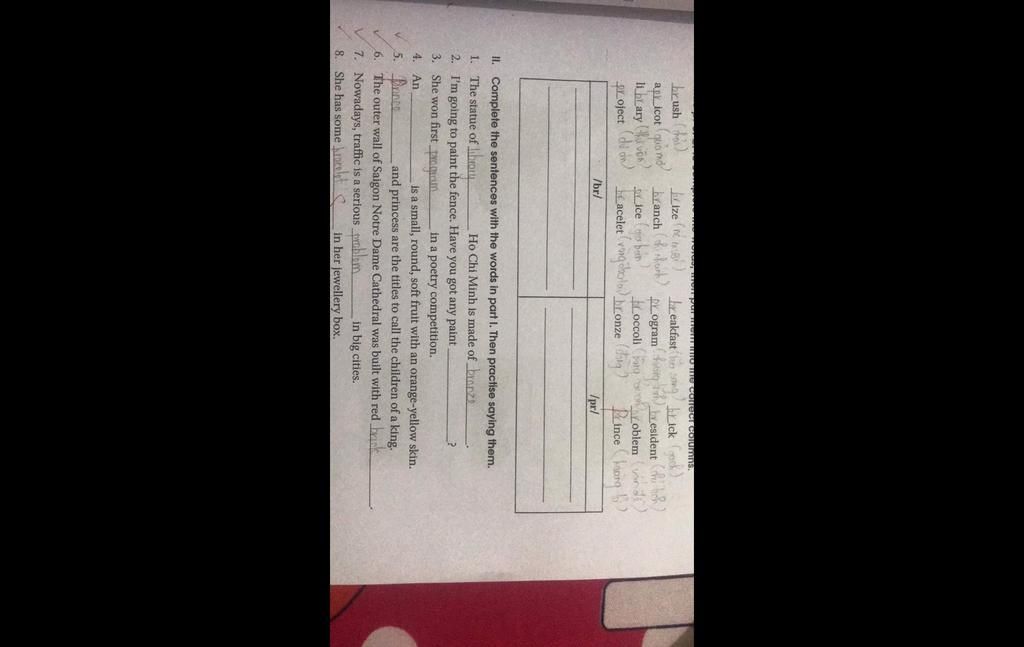 words, then put them into the correct columns.
br ush (chải) pr ize br eakfast br ick (gạch)
a pr icot (quả mơ) br anch (chi nhánh) pr ogram br esident
li br ary (thư viện) pr ice (giá bán) br occoli pr oblem (vấn đề)
pr oject (dự án) br acelet br onze (đồng) Pr ince (hoàng tử)
/br/ /pr/
II. Complete the sentences with the words in part I. Then practise saying them.
1. The statue of library Ho Chi Minh is made of bronze.
2. I'm going to paint the fence. Have you got any paint ________?
3. She won first program in a poetry competition.
4. An ________ is a small, round, soft fruit with an orange-yellow skin.
5. Prince and princess are the titles to call the children of a king.
6. The outer wall of Saigon Notre Dame Cathedral was built with red brick.
7. Nowadays, traffic is a serious problem in big cities.
8. She has some bracelet S in her jewellery box.